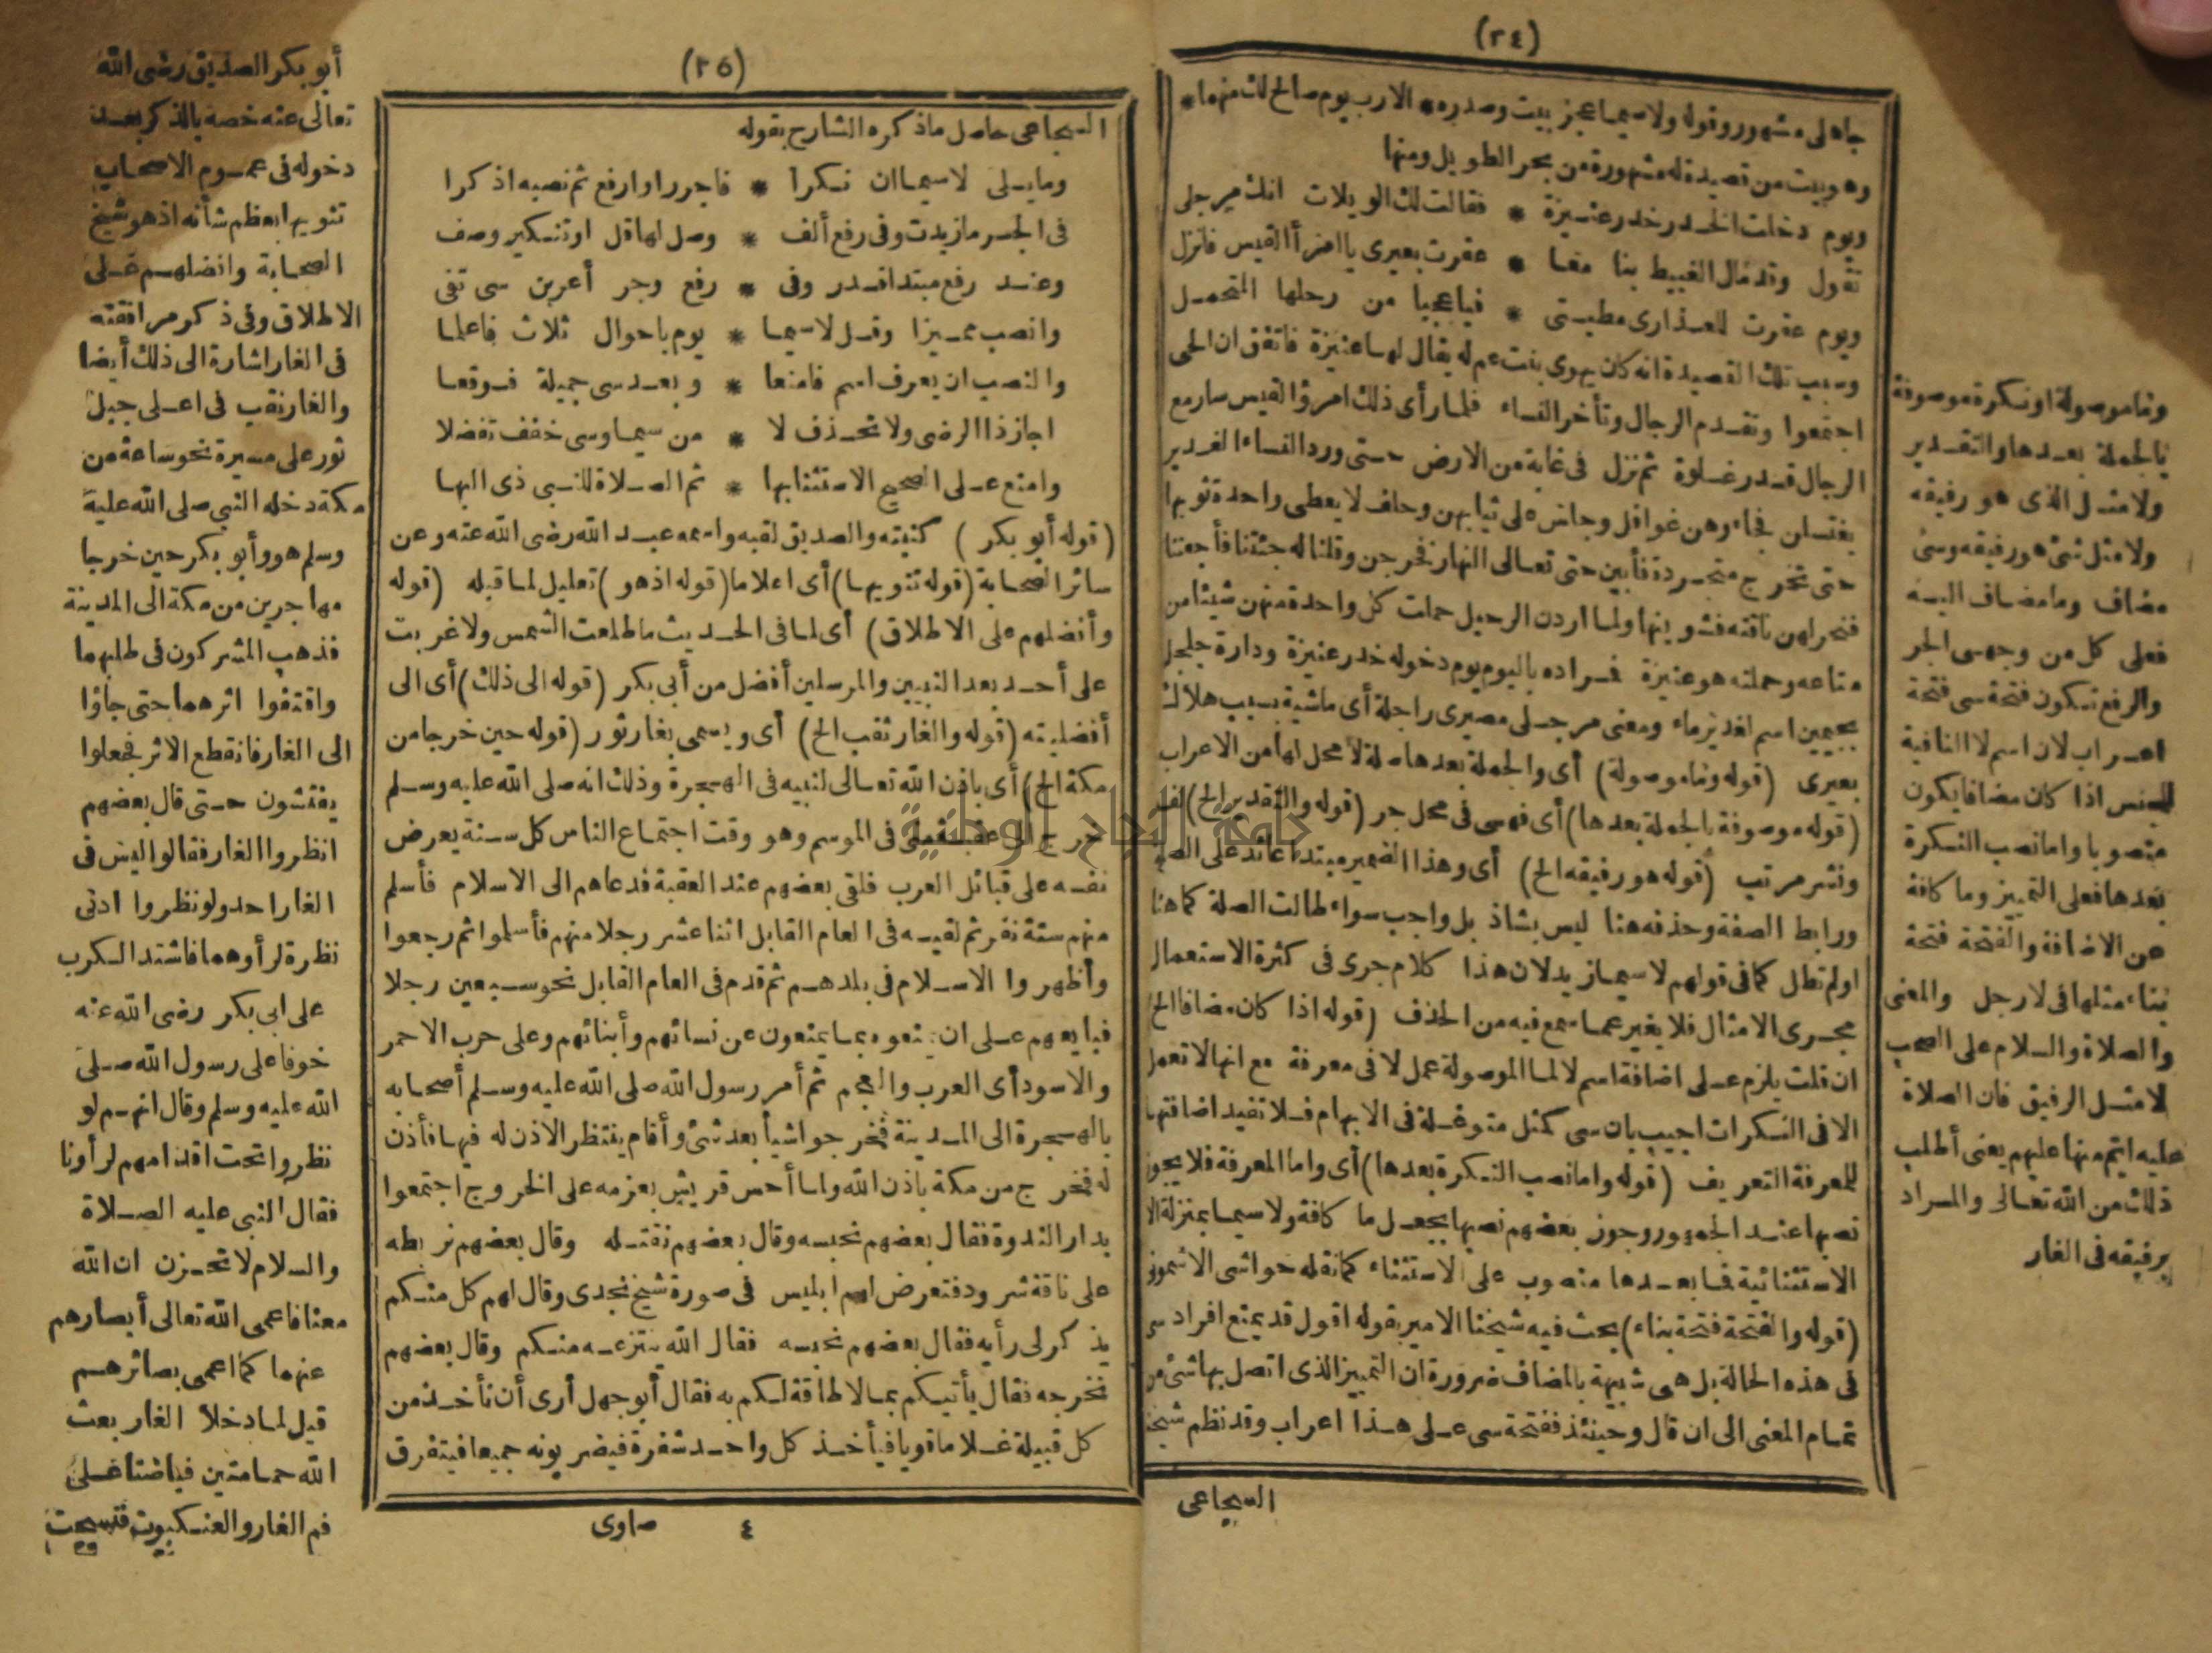 (٢٤)
جاهلى مشهور وقوله ولاسيما عجز بيت وصدره * الا رب يوم صالح لك منهما *
وهو بيت من قصيدة له مشهورة من بحر الطويل ومنها
ويوم دخلت الخدر خدر عنيزة * فقالت لك الويلات انك مرجلى
تقول وقد مال الغبيط بنا معا * عقرت بعيرى يا امرأ القيس فانزل
ويوم عقرت للعذارى مطيتى * فيا عجبا من رحلها المتحمل
وسبب تلك القصيدة انه كان يهوى بنت عم له يقال لها عنيزة فاتفق ان الحى
اجتمعوا وتقدم الرجال وتأخر النساء فلما رأى ذلك امرؤ القيس سار مع
الرجال قدر غلوة ثم نزل فى غابة من الارض حتى ورد النساء الغدير
يغتسلن فجاء وهن غوافل وجلس على ثيابهن وحلف لا يعطى واحدة ثوبها
حتى تخرج متجردة فأبين حتى تعالى النهار فخرجن وقلنا له جئتنا فأجعتنا
فنحر لهن ناقته فشوينها ولما اردن الرحيل حملت كل واحدة منهن شيئا من
متاعه وحملته هو عنيزة فمراده باليوم يوم دخوله خدر عنيزة ودارة جلجل
بجيمين اسم لغدير ماء ومعنى مرجلى مصيرى راجلة أى ماشية بسبب هلاك
بعيرى (قوله وما موصولة) أى والجملة بعدها صلة لا محل لها من الاعراب
(قوله موصوفة بالجملة بعدها) أى فهسى فى محل جر (قوله والتقدير الخ) لف
ونشر مرتب (قوله هو رفيقه الخ) أى وهذا الضمير مبتدأ عائد على الصلة
ورابط الصفة وحذفه هنا ليس بشاذ بل واجب سواء طالت الصلة كما هنا
اولم تطل كما فى قولهم لاسيما زيد لان هذا كلام جرى فى كثرة الاستعمال
مجرى الامثال فلا يغير عما سمع فيه من الحذف (قوله اذا كان مضافا الخ)
ان قلت يلزم على اضافة اسم لا لما الموصولة عمل لا فى معرفة مع انها لا تعمل
الا فى النكرات اجيب بان سى كمثل متوغلة فى الابهام فلا تفيد اضافتها
للمعرفة التعريف (قوله واما نصب النكرة بعدها) أى واما المعرفة فلا يجوز
نصبها عند الجمهور وجوز بعضهم نصبها بجعل ما كافة ولاسيما بمنزلة الا
الاستثنائية فما بعدها منصوب على الاستثناء كما نقله حواشى الاشمونى
(قوله والفتحة فتحة بناء) بحث فيه شيخنا الامير بقوله اقول قد يمتع افراد سى
فى هذه الحالة بل هى شبيهة بالمضاف ضرورة ان التمييز الذى اتصل بها شئ من
تمام المعنى الى ان قال وحينئذ ففتحة سى على هذا اعراب وقد نظم شيخنا
السجاعى
وما موصولة او نكرة موصوفة
بالجملة بعدها والتقدير
ولا مثل الذى هو رفيقه
ولا مثل شئ هو رفيقه وسى
مضاف وما مضاف اليه
فعلى كل من وجهى الجر
والرفع تكون فتحة سى فتحة
اعراب لان اسم لا النافية
للجنس اذا كان مضافا يكون
منصوبا واما نصب النكرة
بعدها فعلى التمييز وما كافة
عن الاضافة والفتحة فتحة
بناء مثلها فى لا رجل والمعنى
والصلاة والسلام على الصحب
لا مثل الرفيق فان الصلاة
عليه اتم منها عليهم يعنى أطلب
ذلك من الله تعالى والمراد
برفيقه فى الغار
(٢٥)
السجاعى حاصل ما ذكره الشارح بقوله
وما يلى لاسيما ان نكرا * فاجرر او ارفع ثم نصبه اذكرا
فى الجر ما زيدت وفى رفع ألف * وصل لها قل او تنكير وصف
وعند رفع مبتدا قدر وفى * رفع وجر أعربن سى تفى
وانصب مميزا وقل لاسيما * يوم باحوال ثلاث فاعلما
والنصب ان يعرف اسم فامنعا * وبعد سى جميلة فوقعا
اجاز ذا الرضى ولا تحذف لا * من سيما وسى خفف تفضلا
وامنع على الصحيح الاستثنا بها * ثم الصلاة للنبى ذى البها
(قوله أبو بكر) كنيته والصديق لقبه واسمه عبد الله رضى الله عنه وعن
سائر الصحابة (قوله تنويها) أى اعلاما (قوله اذ هو) تعليل لما قبله (قوله
وأفضلهم على الاطلاق) أى لما فى الحديث ما طلعت الشمس ولا غربت
على أحد بعد النبيين والمرسلين أفضل من أبى بكر (قوله الى ذلك) أى الى
أفضليته (قوله والغار ثقب الخ) أى ويسمى بغار ثور (قوله حين خرجا من
مكة الخ) أى باذن الله تعالى لنبيه فى الهجرة وذلك انه صلى الله عليه وسلم
خرج الى عقبة منى فى الموسم وهو وقت اجتماع الناس كل سنة يعرض
نفسه على قبائل العرب فلقى بعضهم عند العقبة فدعاهم الى الاسلام فأسلم
منهم ستة نفر ثم لقيه فى العام القابل اثنا عشر رجلا منهم فأسلموا ثم رجعوا
وأظهروا الاسلام فى بلدهم ثم قدم فى العام القابل نحو سبعين رجلا
فبايعهم على ان يمنعوه بما يمنعون عن نسائهم وأبنائهم وعلى حرب الاحمر
والاسود أى العرب والعجم ثم أمر رسول الله صلى الله عليه وسلم أصحابه
بالهجرة الى المدينة فخرجوا شيأ بعد شئ وأقام ينتظر الاذن له فيها فأذن
له فخرج من مكة باذن الله ولما أحس قريش بعزمه على الخروج اجتمعوا
بدار الندوة فقال بعضهم نحبسه وقال بعضهم نقتله وقال بعضهم نربطه
على ناقة شرود فتعرض لهم ابليس فى صورة شيخ نجدى وقال لهم كل منكم
يذكر لى رأيه فقال بعضهم نحبسه فقال الله ينتزعه منكم وقال بعضهم
نخرجه فقال يأتيكم بما لا طاقة لكم به فقال أبو جهل أرى أن نأخذ من
كل قبيلة غلاما قويا فيأخذ كل واحد شفرة فيضربونه جميعا فيتفرق
٤ صاوى
أبو بكر الصديق رضى الله
تعالى عنه خصه بالذكر بعد
دخوله فى عموم الاصحاب
تنويها بعظم شأنه اذ هو شيخ
الصحابة وافضلهم على
الاطلاق وفى ذكر مرافقته
فى الغار اشارة الى ذلك أيضا
والغار نقب فى اعلى جبل
ثور على مسيرة نحو ساعة من
مكة دخله النبى صلى الله عليه
وسلم هو وأبو بكر حين خرجا
مهاجرين من مكة الى المدينة
فذهب المشركون فى طلبهما
واقتفوا اثرهما حتى جاؤا
الى الغار فانقطع الاثر فجعلوا
يفتشون حتى قال بعضهم
انظروا الغار فقالوا ليس فى
الغار احد ولو نظروا ادنى
نظرة لرأوهما فاشتد الكرب
على ابى بكر رضى الله عنه
خوفا على رسول الله صلى
الله عليه وسلم وقال انهم لو
نظروا تحت اقدامهم لرأونا
فقال النبى عليه الصلاة
والسلام لا تحزن ان الله
معنا فاعمى الله تعالى أبصارهم
عنهما كما اعمى بصائرهم
قيل لما دخلا الغار بعث
الله حمامتين فباضتا على
فم الغار والعنكبوت فنسجت
جامعة النجاح الوطنية